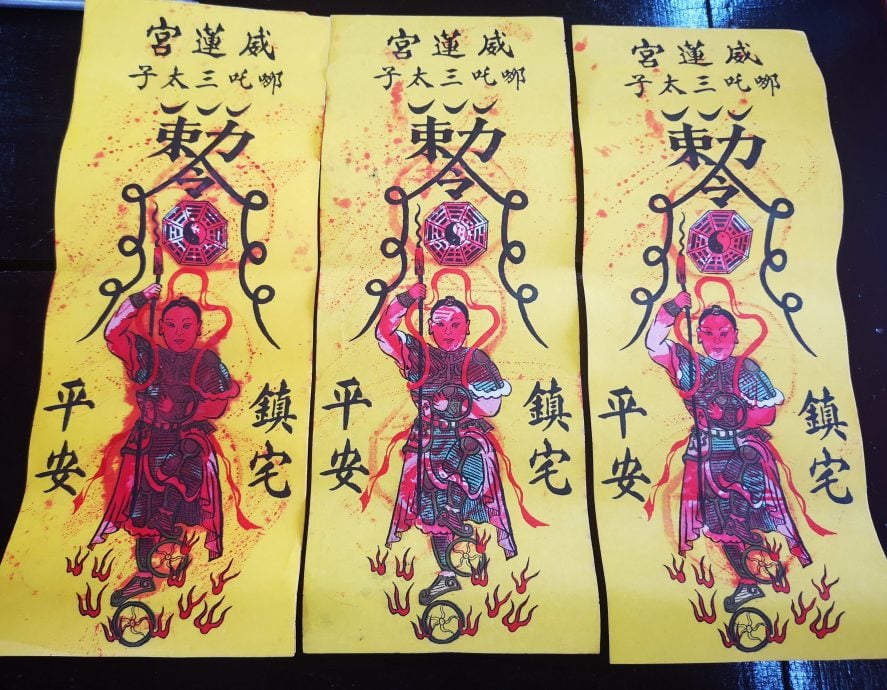 威蓮宮
哪吒三太子
勅令
鎮宅
平安
威蓮宮
哪吒三太子
勅令
鎮宅
平安
威蓮宮
哪吒三太子
勅令
鎮宅
平安